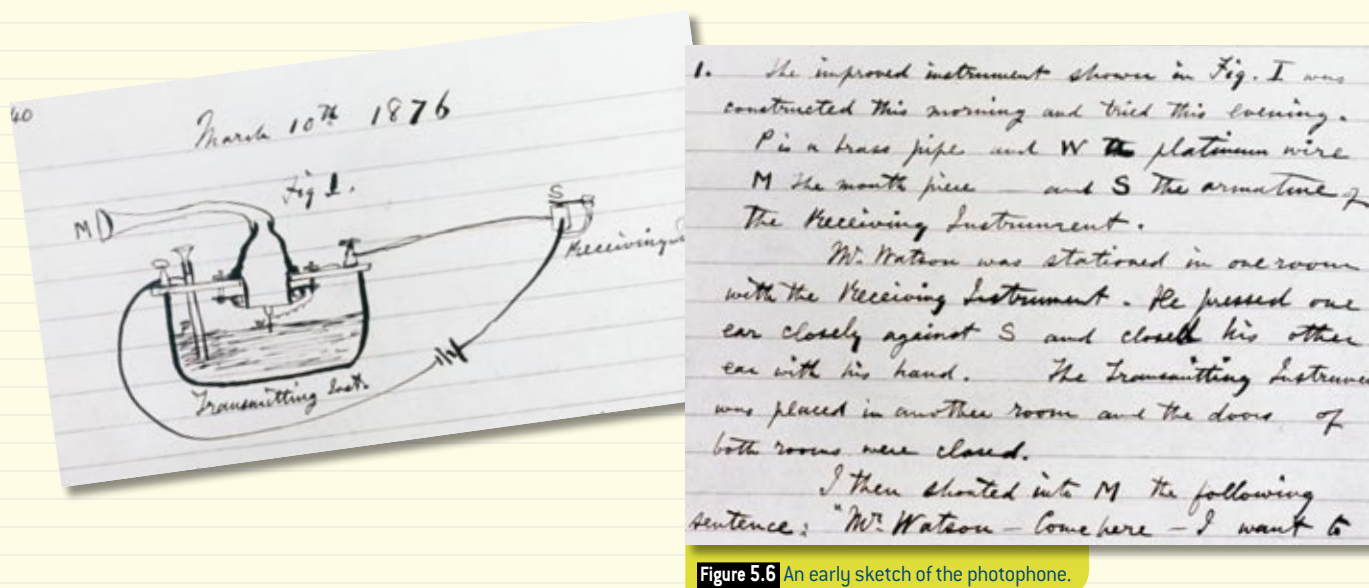 40
March 10th 1876
Fig 1.
M
S
Receiving
Transmitting Inst.
1. The improved instrument shown in Fig. I was
constructed this morning and tried this evening.
P is a brass pipe and W the platinum wire
M the mouth piece — and S the armature of
the Receiving Instrument.
Mr. Watson was stationed in one room
with the Receiving Instrument. He pressed one
ear closely against S and closed his other
ear with his hand. The Transmitting Instrumen
was placed in another room and the doors of
both rooms were closed.
I then shouted into M the following
sentence: "Mr. Watson – Come here – I want to
Figure 5.6 An early sketch of the photophone.